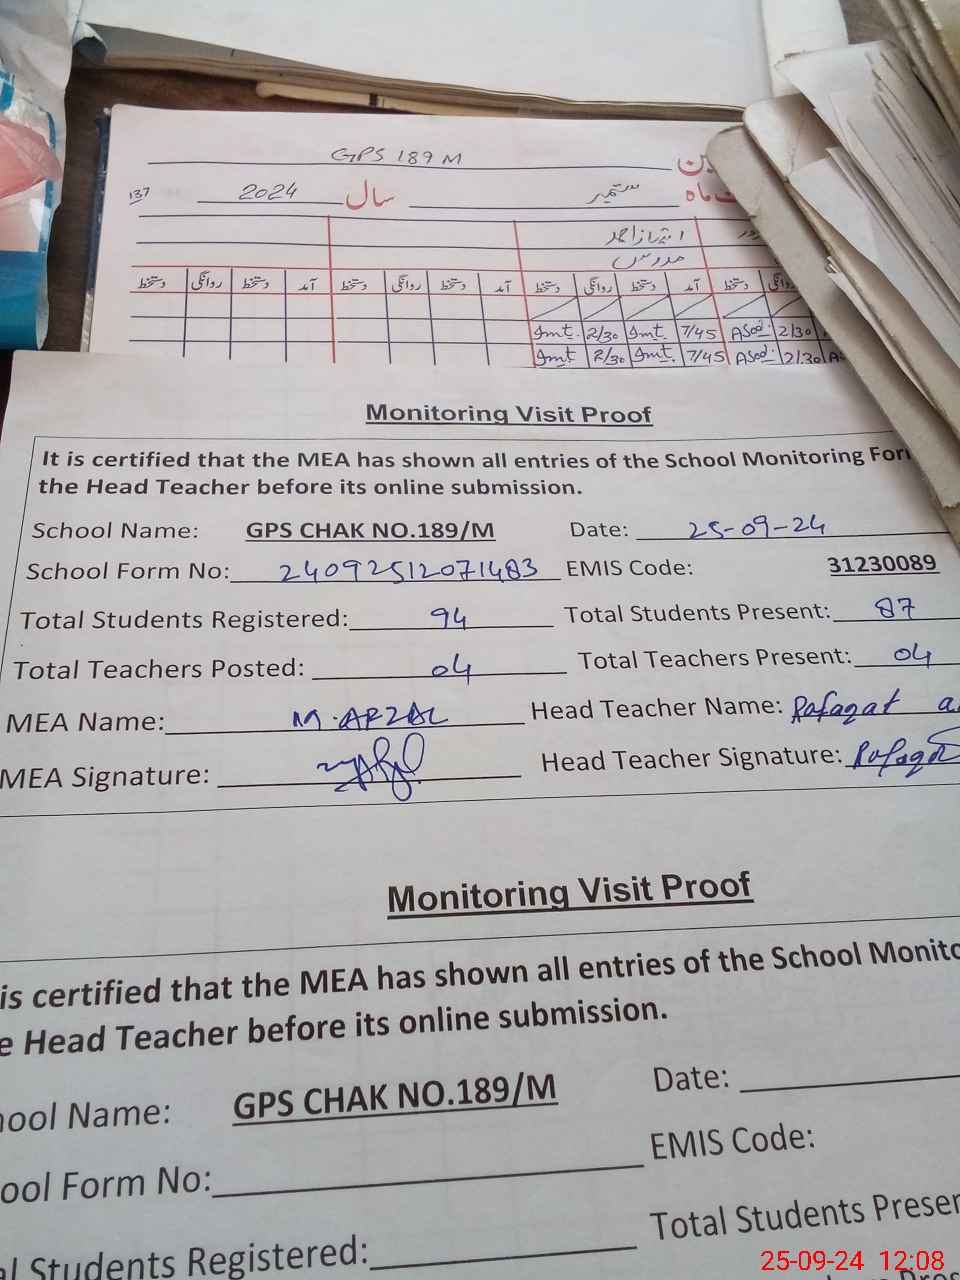 GPS 189 M
137 2024 سال ستمبر ت ماہ
مدرس
دستخط روانگی دستخط آمد دستخط روانگی دستخط آمد دستخط روانگی دستخط آمد دستخط
Imt. 2/30 Imt. 7/45 ASad. 2/30
Imt 2/30 Imt. 7/45 ASad. 2/30
Monitoring Visit Proof
It is certified that the MEA has shown all entries of the School Monitoring For
the Head Teacher before its online submission.
School Name: GPS CHAK NO.189/M Date: 25-09-24
School Form No: 24092512071483 EMIS Code: 31230089
Total Students Registered: 94 Total Students Present: 87
Total Teachers Posted: 04 Total Teachers Present: 04
MEA Name: M.AFZAL Head Teacher Name: Rafaqat a
MEA Signature: Head Teacher Signature: Rafaqa
Monitoring Visit Proof
is certified that the MEA has shown all entries of the School Monito
e Head Teacher before its online submission.
hool Name: GPS CHAK NO.189/M Date:
ool Form No: EMIS Code:
al Students Registered: Total Students Presen
25-09-24 12:08